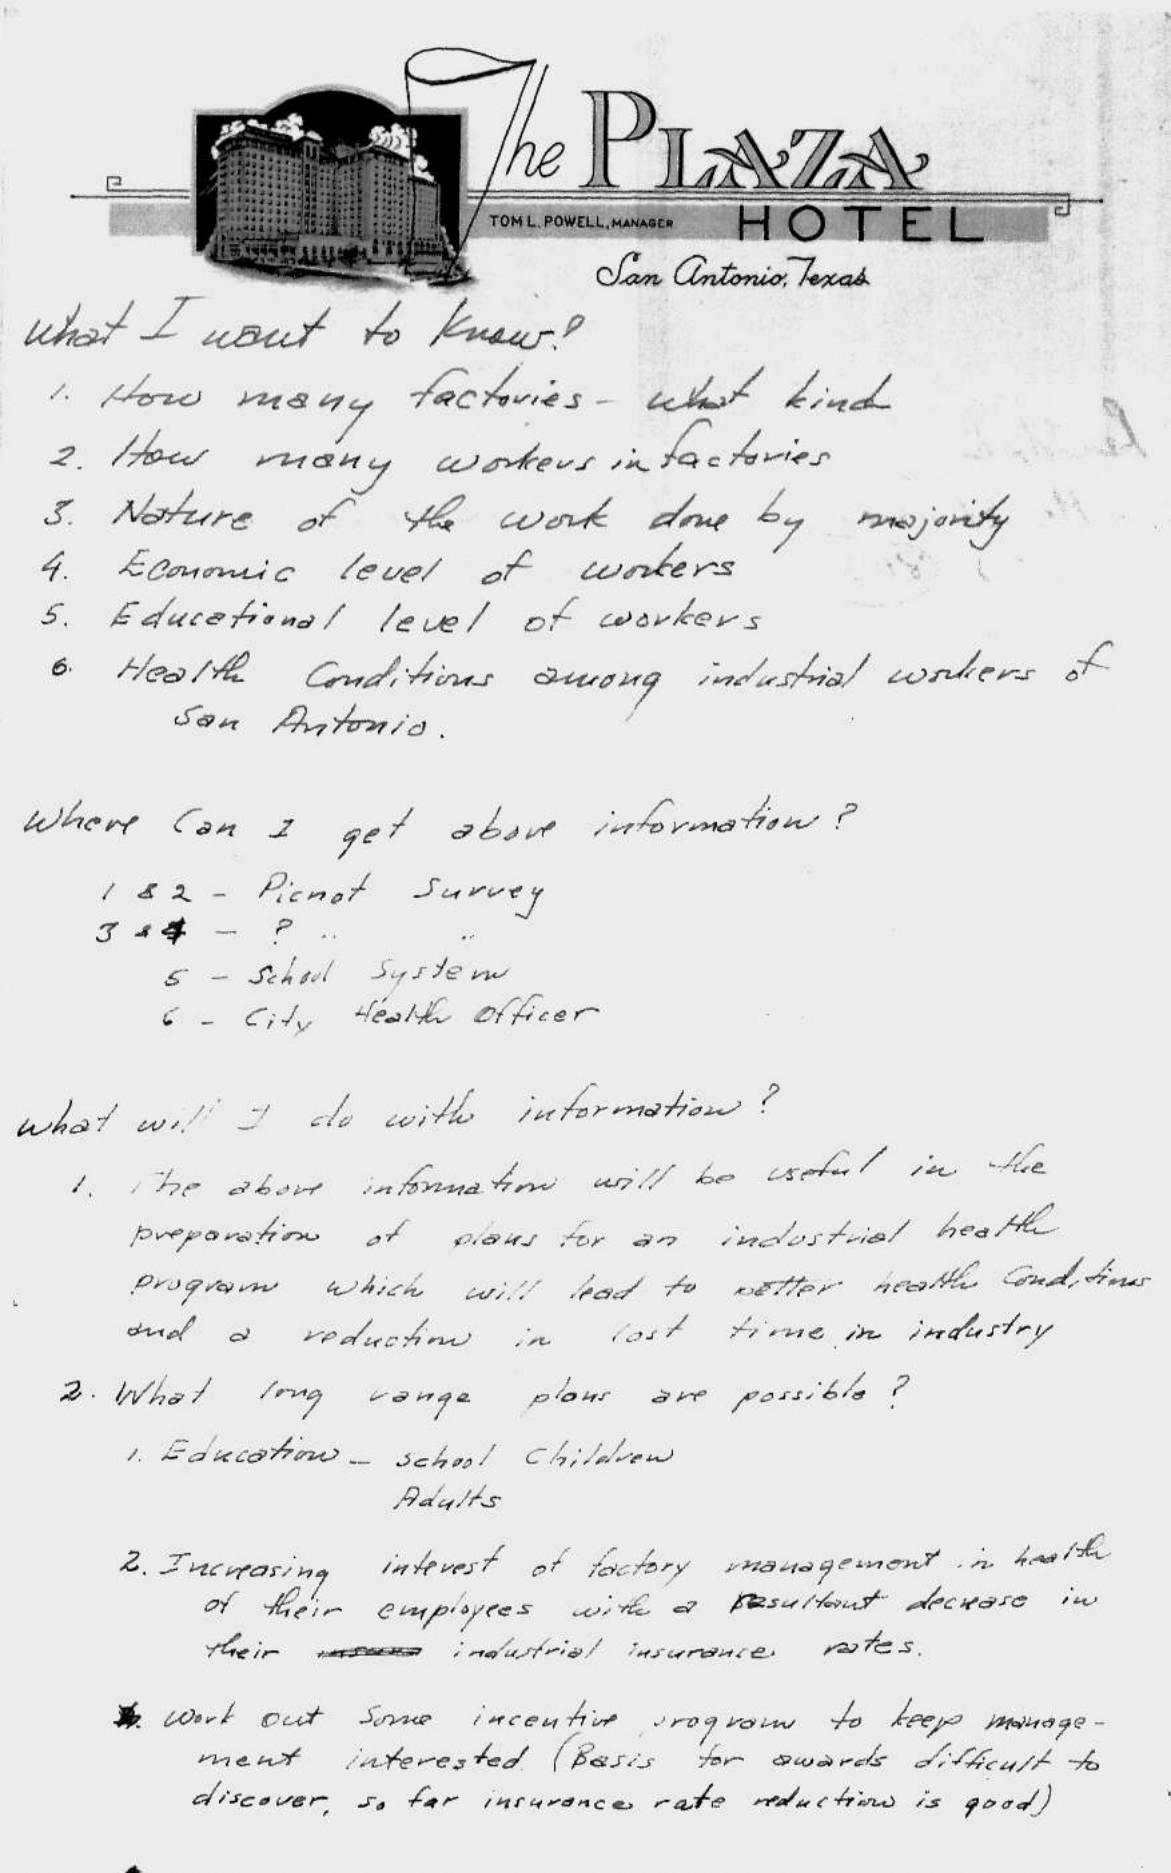 The PLAZA
HOTEL
TOM L. POWELL, MANAGER
San Antonio, Texas
What I want to know?
1. How many factories - what kind
2. How many workers in factories
3. Nature of the work done by majority
4. Economic level of workers
5. Educational level of workers
6. Health Conditions among industrial workers of
San Antonio.
Where Can I get above information?
1 & 2 - Picnot Survey
3 & 4 - ? " "
5 - School System
6 - City Health Officer
What will I do with information?
1. The above information will be useful in the
preparation of plans for an industrial health
program which will lead to better health Conditions
and a reduction in lost time in industry
2. What long range plans are possible?
1. Education - School Children
Adults
2. Increasing interest of factory management in health
of their employees with a resultant decrease in
their industrial insurance rates.
Work out some incentive program to keep manage-
ment interested (Basis for awards difficult to
discover, so far insurance rate reduction is good)